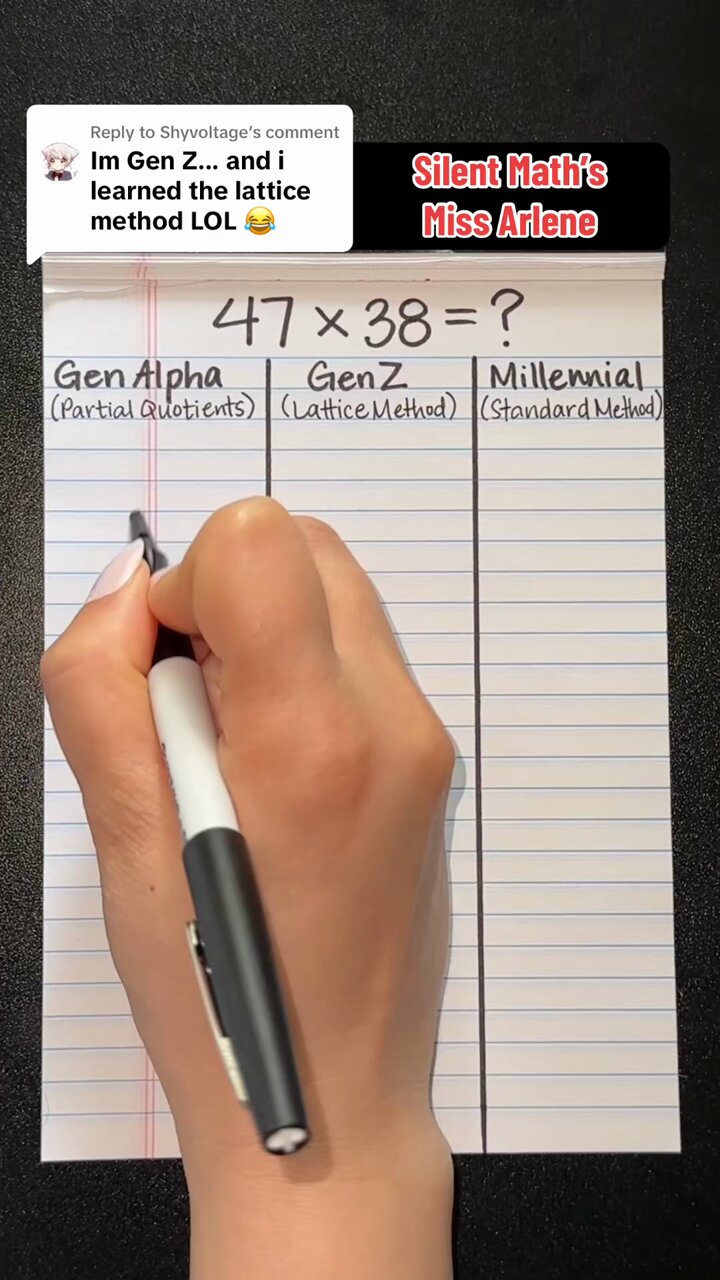 Reply to Shyvoltage's comment
Im Gen Z... and i
learned the lattice
method LOL 😂
Silent Math's
Miss Arlene
47 × 38 = ?
Gen Alpha
(Partial Quotients)
Gen Z
(Lattice Method)
Millennial
(Standard Method)